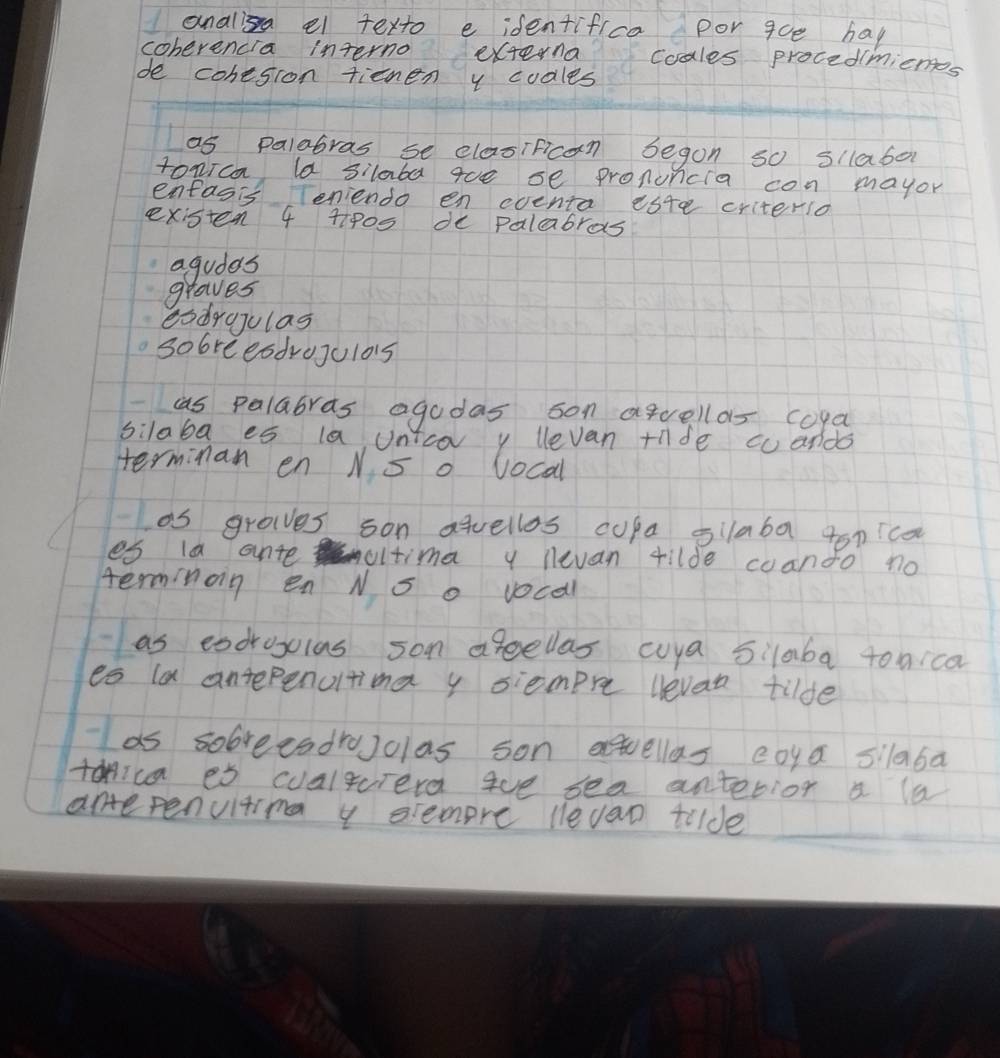 1 analisa el texto e identifica por qce hay
coherencia interno externa coales procedimientos
de cohesion tienen y cuales
Las palabras se clasifican segon so silaba
tonica, la silaba que se pronuncia con mayor
enfasis Teniendo en coenta este criterio
existen 4 tipos de palabras
• agudas
• graves
• esdrujulas
• sobreesdrujulas
- Las palabras agudas son aquellas coya
silaba es la unica y llevan tilde cuando
terminan en N, S o vocal
- Las graves son aquellas cuya silaba tonica
es la ante ultima y llevan tilde cuando no
terminan en N, S o vocal
- Las esdrujulas son aqoellas cuya silaba tonica
es la antepenultima y siempre llevan tilde
- Las sobreesdrujulas son aquellas coya silaba
tonica es cualquiera que sea anterior a la
antepenultima y siempre llevan tilde